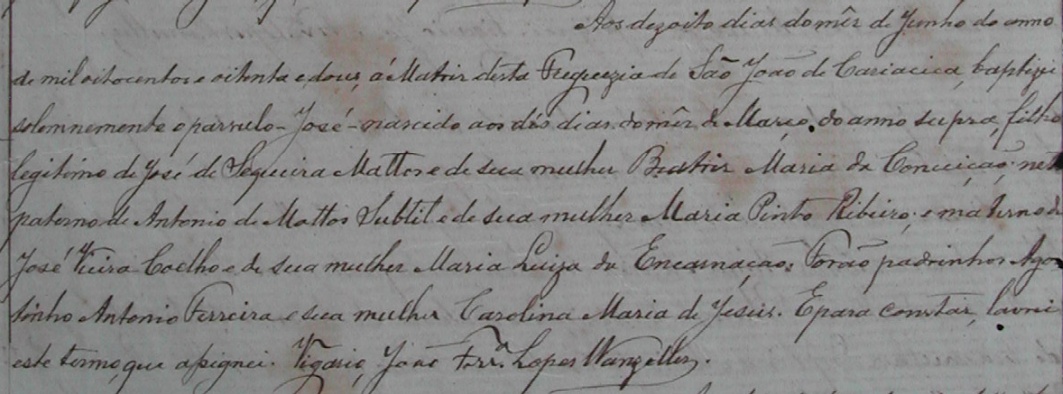 Aos dezoito dias do mêz de Junho do anno
de mil oitocentos e oitenta e dous, á Matriz desta Freguezia de São João de Cariacica, baptizei
solemnemente o parvulo - José - nascido aos dés dias do mêz de Março, do anno supra, filho
legitimo de José de Sequeira Mattos e de sua mulher Beatriz Maria da Conceição; neto
paterno de Antonio de Mattos Subtil e de sua mulher Maria Pinto Ribeiro; e materno de
José Vieira Coelho e de sua mulher Maria Luiza da Encarnação. Forão padrinhos Agos-
tinho Antonio Ferreira e sua mulher Carolina Maria de Jesus. E para constar, lavrei
este termo, que assignei. Vigario, João Ferrª Lopes Wanzeller.